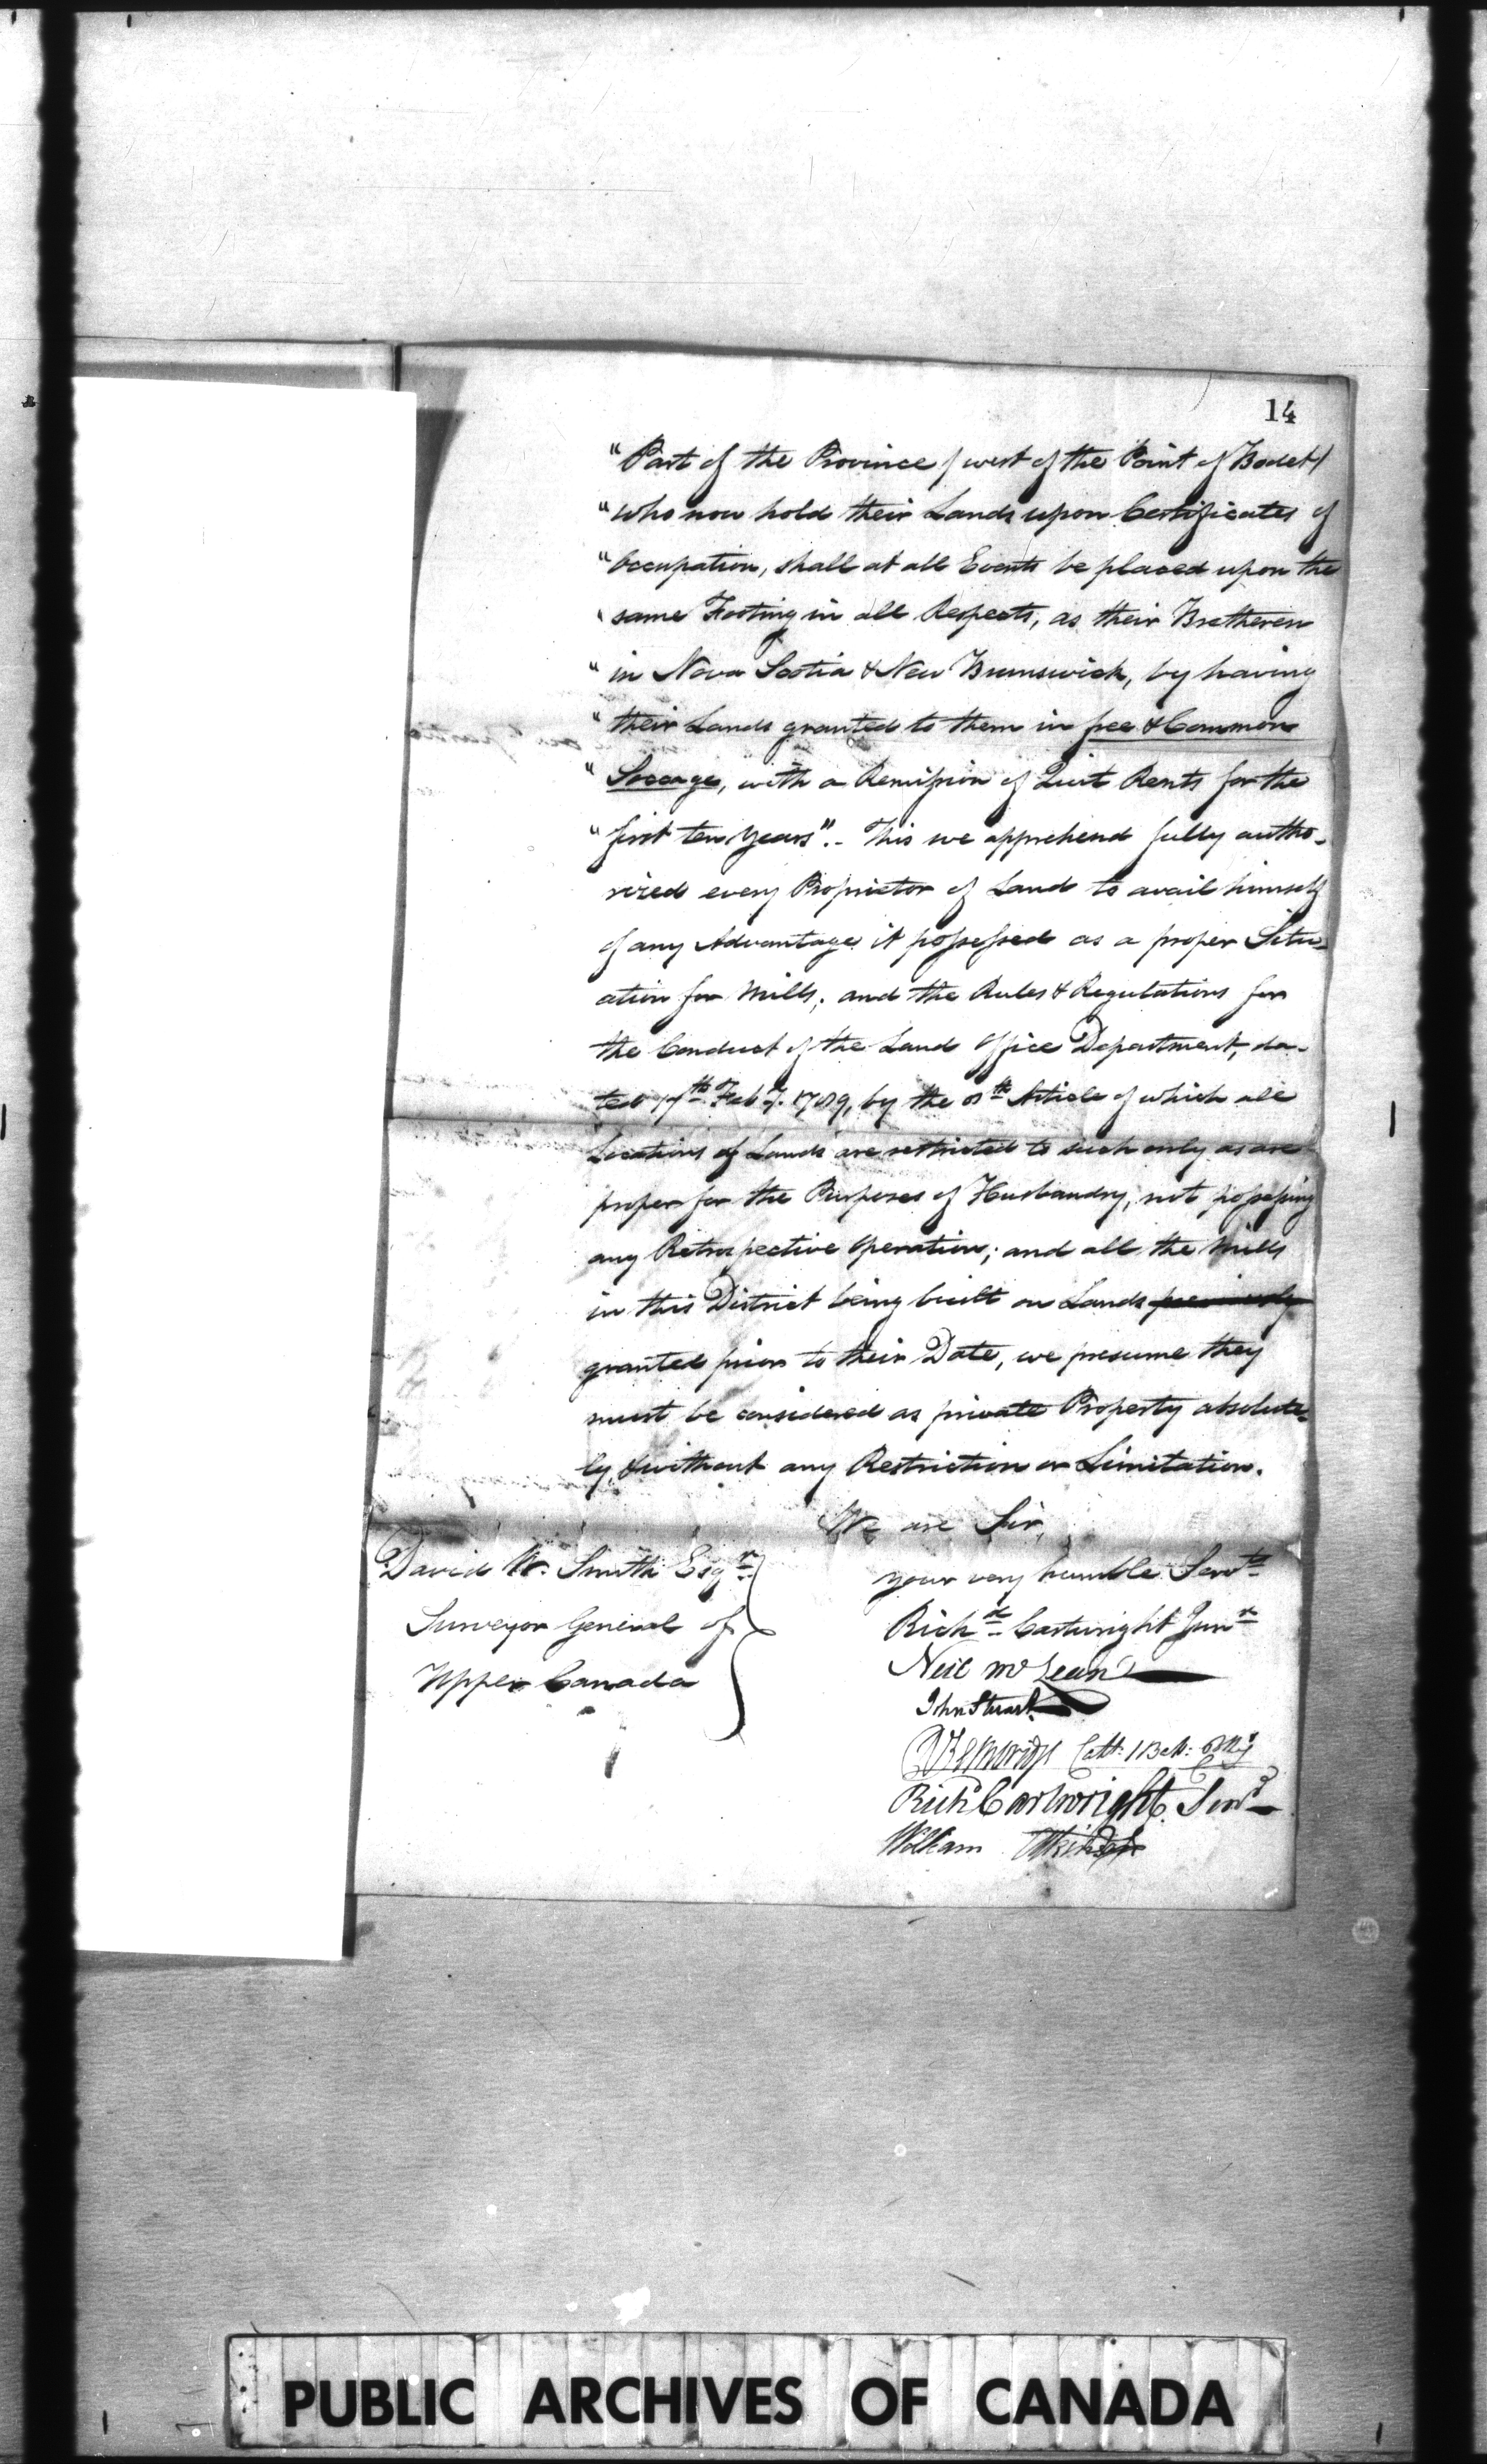 14
"Part of the Province / west of the Point of Bodet/
"who now hold their Lands upon Certificates of
"Occupation, shall at all Events be placed upon the
"same Footing in all Respects, as their Bretheren
"in Nova Scotia & New Brunswick, by having
"their Lands granted to them in free & Common
"Soccage, with a Remission of Quit Rents for the
"first ten Years".- This we apprehend fully autho-
rized every Proprietor of Land to avail himself
of any Advantage it possessed as a proper Situ-
ation for Mills; and the Rules & Regulations for
the Conduct of the Land Office Department, da-
ted 17th Feby. 1789, by the 8th Article of which all
Locations of Lands are restricted to such only as are
proper for the Purposes of Husbandry, not possessing
any Retrospective Operation; and all the Mills
in this District being built on Lands previously
granted prior to their Date, we presume they
must be considered as private Property absolute-
ly, & without any Restriction or Limitation.
We are Sir,
your very humble Servts
David W. Smith Esqr.
Surveyor General of
Upper Canada
Richd. Cartwright Junr
Neil McLean
John Stuart
Richd Cartwright Senr
William Atkinson
PUBLIC ARCHIVES OF CANADA